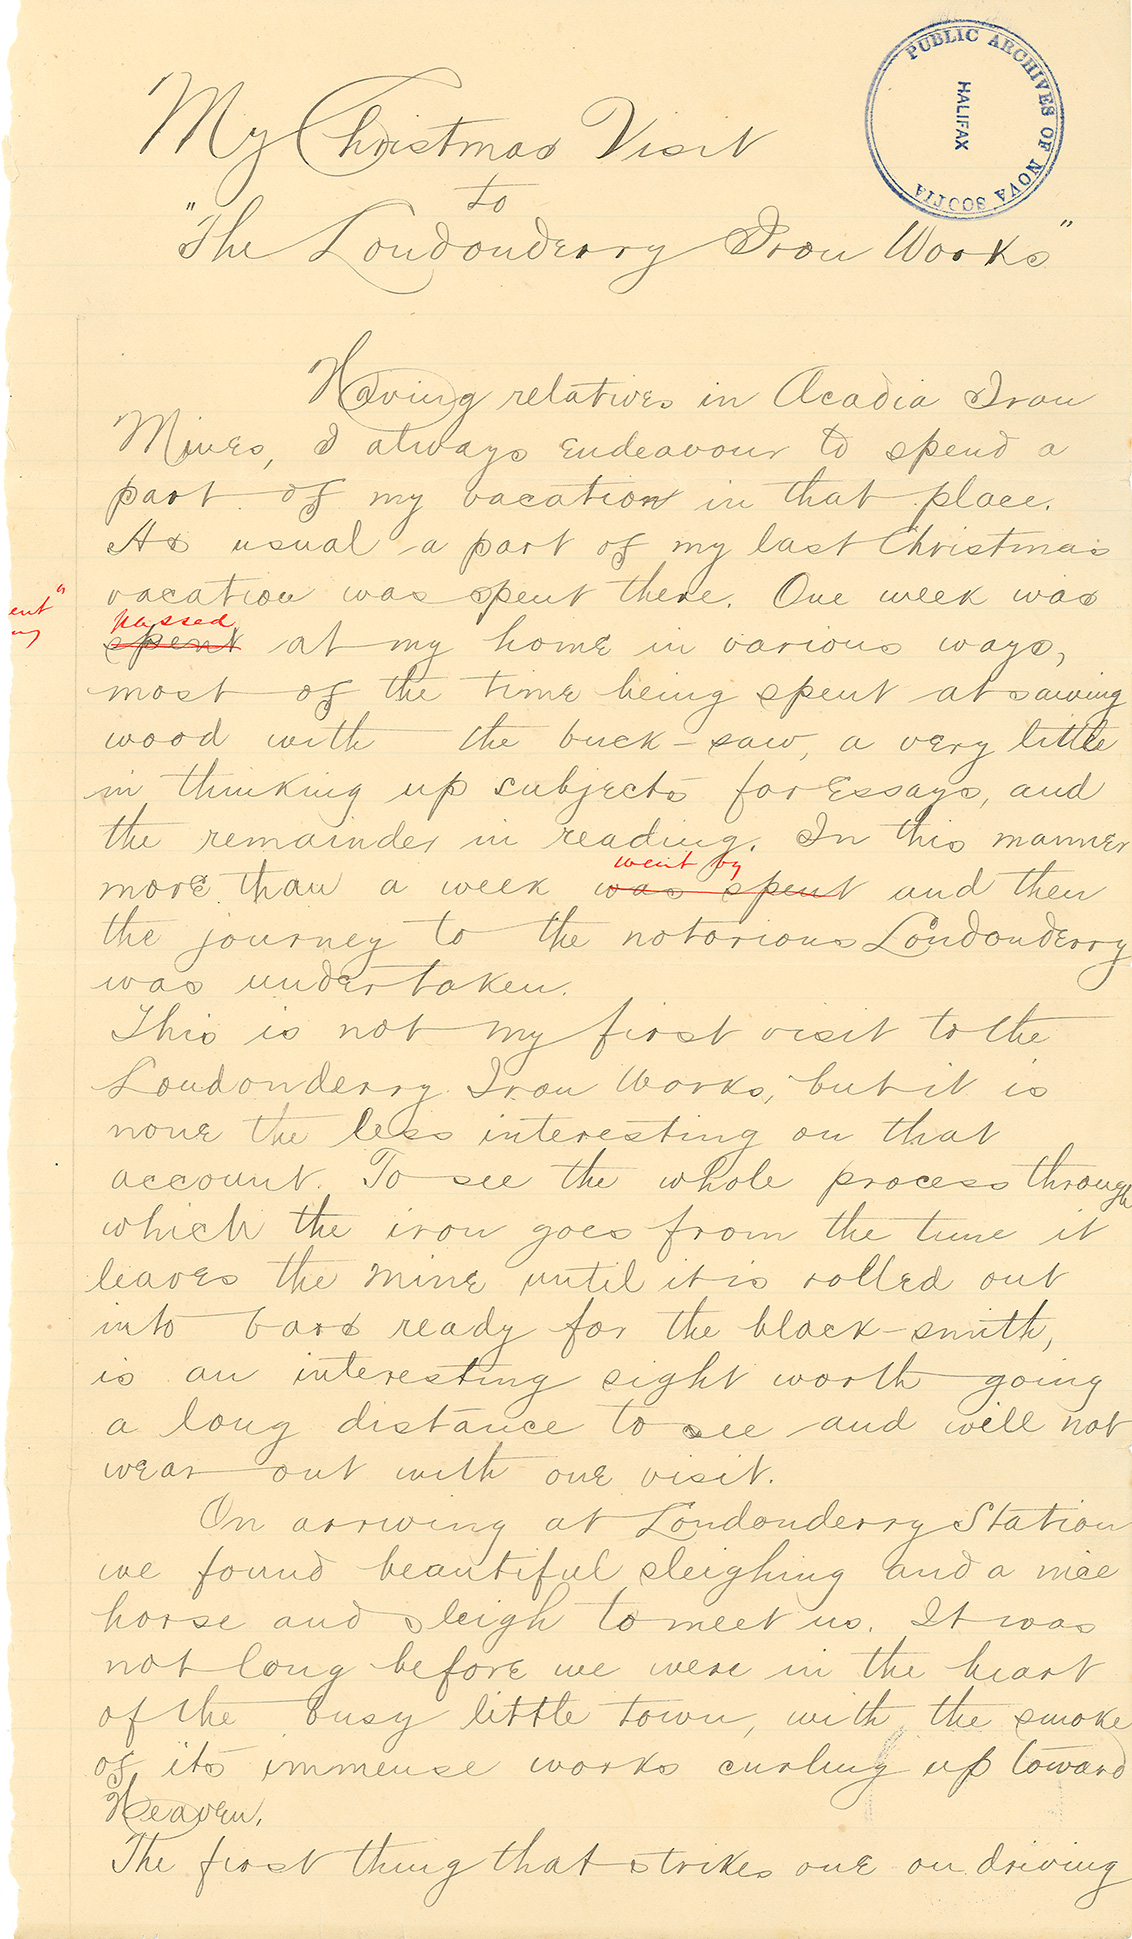 PUBLIC ARCHIVES OF NOVA SCOTIA
HALIFAX
My Christmas Visit
to
"The Londonderry Iron Works"
Having relatives in Acadia Iron
Mines, I always endeavour to spend a
part of my vacation in that place.
As usual a part of my last Christmas
vacation was spent there. One week was
passed
spent at my home in various ways,
most of the time being spent at sawing
wood with the buck-saw, a very little
in thinking up subjects for Essays, and
the remainder in reading. In this manner
went by
more than a week was spent and then
the journey to the notorious Londonderry
was undertaken.
This is not my first visit to the
Londonderry Iron Works, but it is
none the less interesting on that
account. To see the whole process through
which the iron goes from the time it
leaves the mine until it is rolled out
into bars ready for the black-smith,
is an interesting sight worth going
a long distance to see and will not
wear out with one visit.
On arriving at Londonderry Station
we found beautiful sleighing and a nice
horse and sleigh to meet us. It was
not long before we were in the heart
of the busy little town, with the smoke
of its immense works curling up toward
Heaven.
The first thing that strikes one on driving